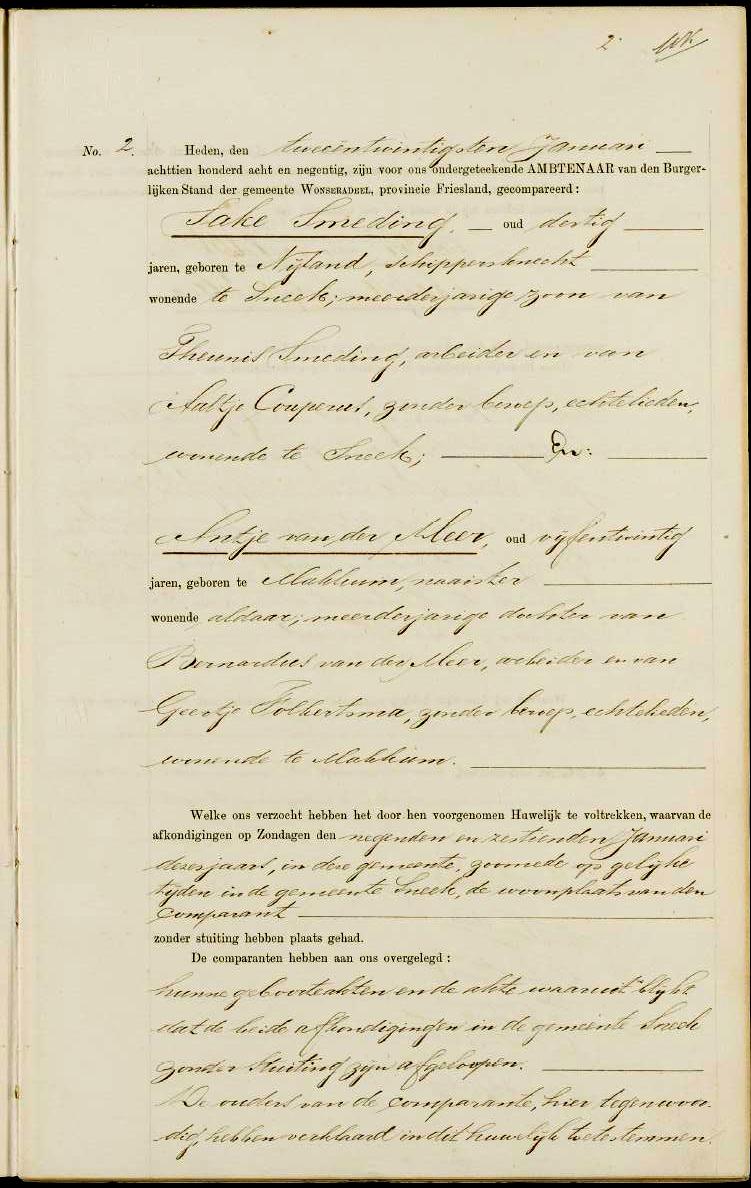 2
No. 2. Heden, den tweeëntwintigsten Januari
achttien honderd acht en negentig, zijn voor ons ondergeteekende AMBTENAAR van den Burger-
lijken Stand der gemeente WONSERADEEL, provincie Friesland, gecompareerd:
Sake Smeding, oud dertig
jaren, geboren te Nijland, schippersknecht
wonende te Sneek; meerderjarige zoon van
Theunis Smeding, arbeider en van
Aaltje Couperus, zonder beroep, echtelieden,
wonende te Sneek; En:
Antje van der Meer, oud vijfentwintig
jaren, geboren te Makkum, naaister
wonende aldaar; meerderjarige dochter van
Bernardus van der Meer, arbeider en van
Geertje Folkertsma, zonder beroep, echtelieden,
wonende te Makkum.
Welke ons verzocht hebben het door hen voorgenomen Huwelijk te voltrekken, waarvan de
afkondigingen op Zondagen den negenden en zestienden Januari
dezer jaars, in deze gemeente, zoomede op gelijke
tijden in de gemeente Sneek, de woonplaats van den
comparant
zonder stuiting hebben plaats gehad.
De comparanten hebben aan ons overgelegd:
hunne geboorteakten en de akte waaruit blijkt
dat de beide afkondigingen in de gemeente Sneek
zonder stuiting zijn afgeloopen.
De ouders van de comparante, hier tegenwoor-
dig, hebben verklaard in dit huwelijk toetestemmen.